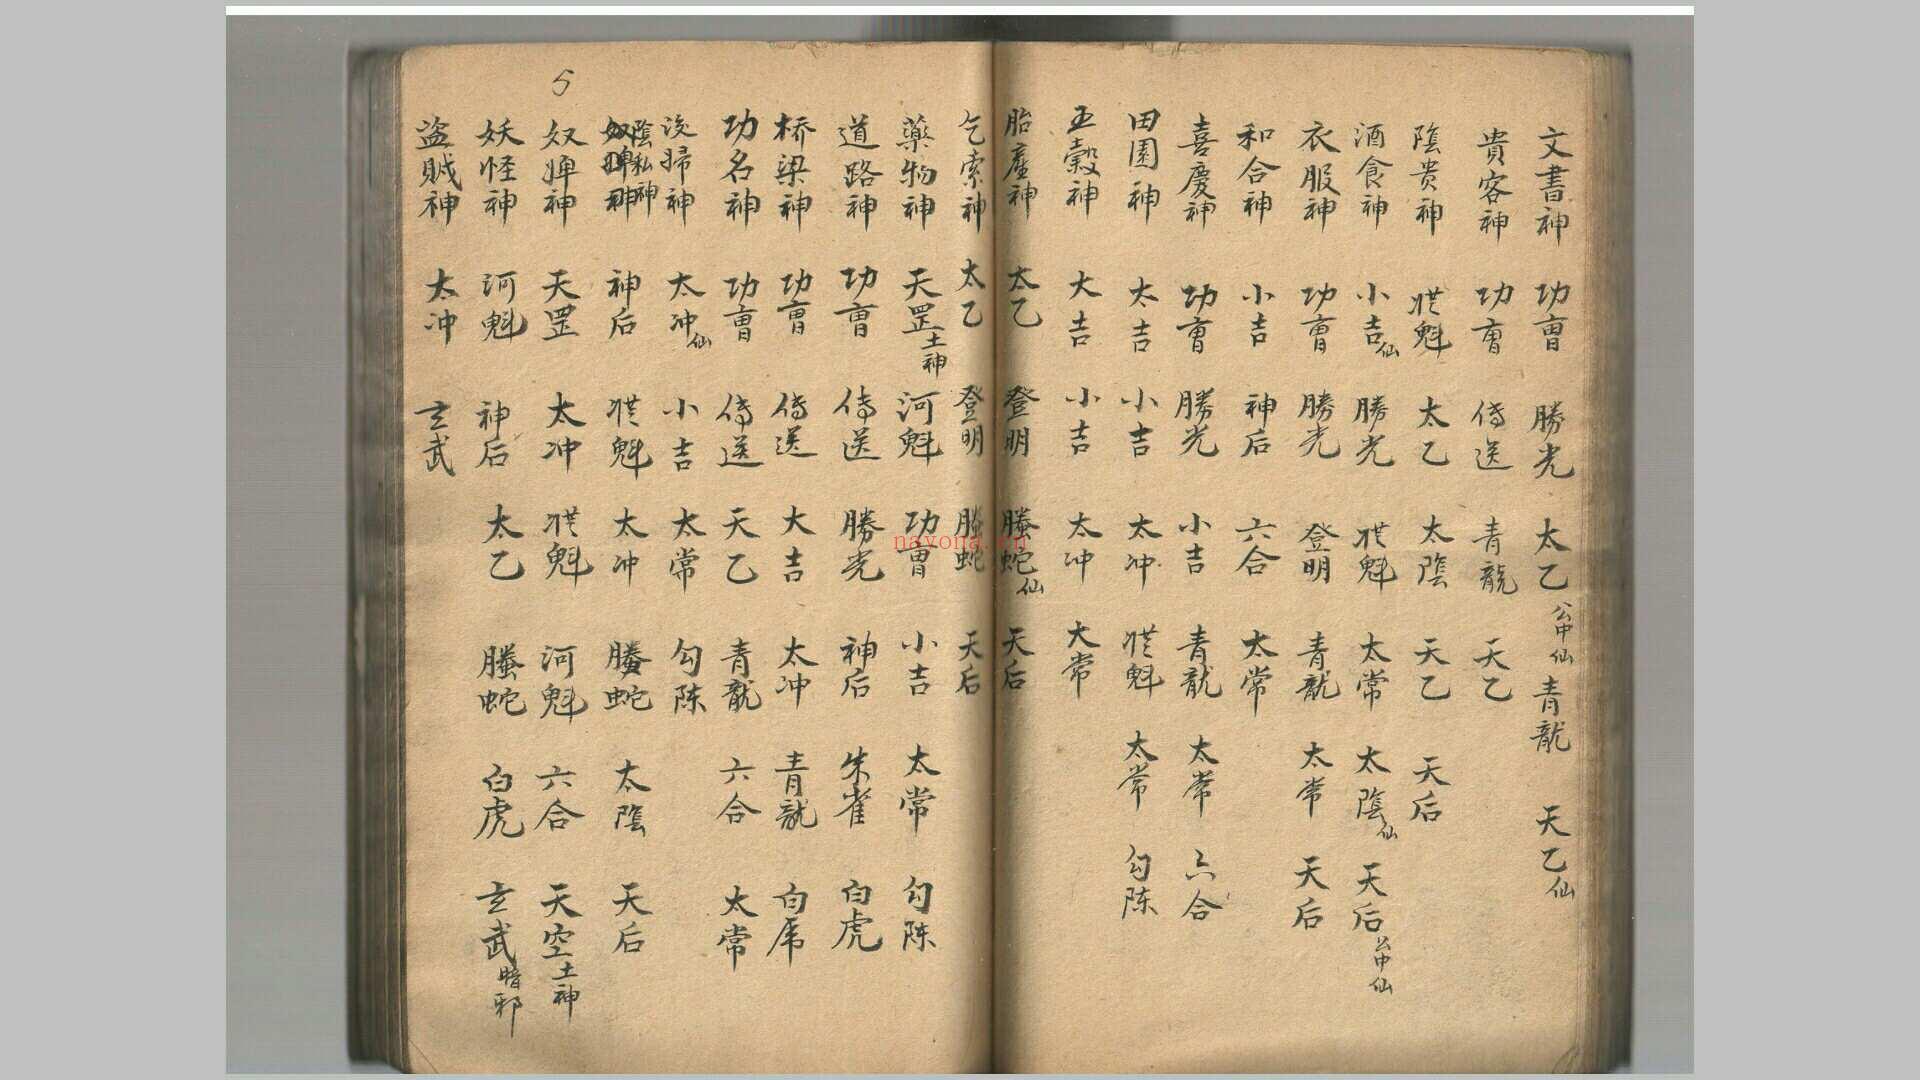 文書神 功曹 勝光 太乙 公中仙 青龍 天乙仙
貴客神 功曹 傳送 青龍 天乙
陰贵神 從魁 太乙 太陰 天乙 天后
酒食神 小吉仙 勝光 從魁 太常 太陰仙 天后 公中仙
衣服神 功曹 勝光 登明 青龍 太常 天后
和合神 小吉 神后 六合 太常
喜慶神 功曹 勝光 小吉 青龍 太常 六合
田園神 太吉 小吉 太冲 從魁 太常 勾陈
五穀神 大吉 小吉 太冲 大常
胎産神 太乙 登明 螣蛇仙 天后
乞索神 太乙 登明 螣蛇 天后
藥物神 天罡土神 河魁 功曹 小吉 太常 勾陈
道路神 功曹 傳送 勝光 神后 朱雀 白虎
桥梁神 功曹 傳送 大吉 太冲 青龍 白虎
功名神 功曹 傳送 天乙 青龍 六合 太常
太冲仙 小吉 太常 勾陈
陰私神 神后 從魁 太冲 螣蛇 太陰 天后
奴婢神 天罡 太冲 從魁 河魁 六合 天空土神
妖怪神 河魁 神后 太乙 螣蛇 白虎 玄武 暗邪
盗賊神 太冲 玄武
5
nayona.cn